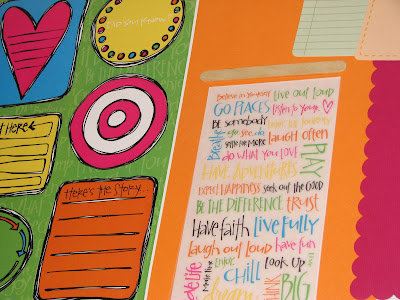 Do you know
t Here
Here's the Story...
Believe in yourself live out loud
GO PLACES listen to your
BE somebody
Breathe go see do laugh often
smile live More
do what you LOVE
PLAY
HAVE ADVENTURES
EXPECT HAPPINESS seek out the GOOD
BE THE DIFFERENCE TRUST
Have faith live fully
laugh out loud have fun
love Life enjoy LOOK UP
CHILL
THINK BIG
dream